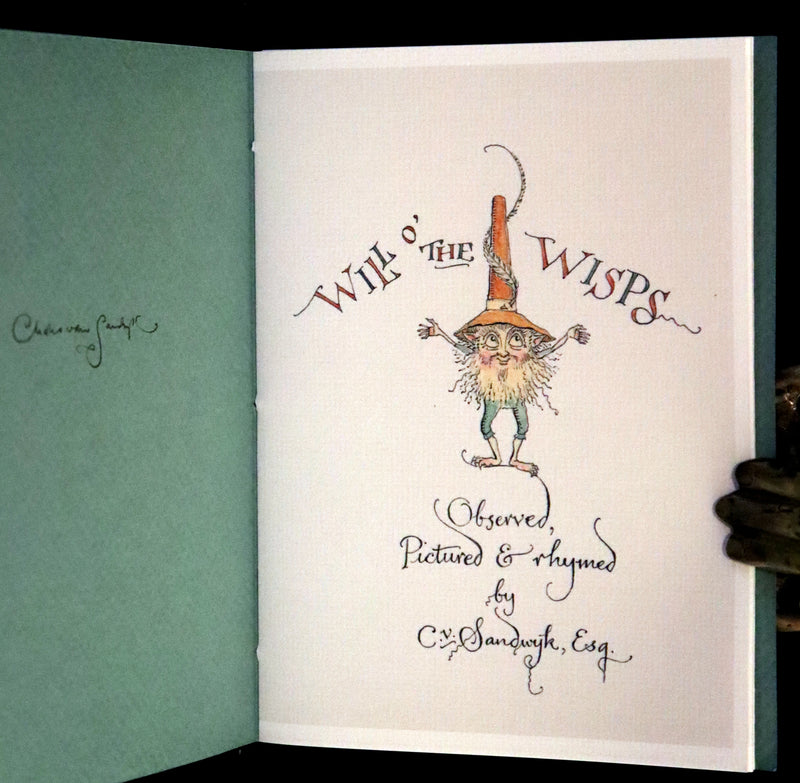 Charles van Sandwyk
WILL O' THE WISPS
Observed,
Pictured & rhymed
by
C.v. Sandwyk, Esq.